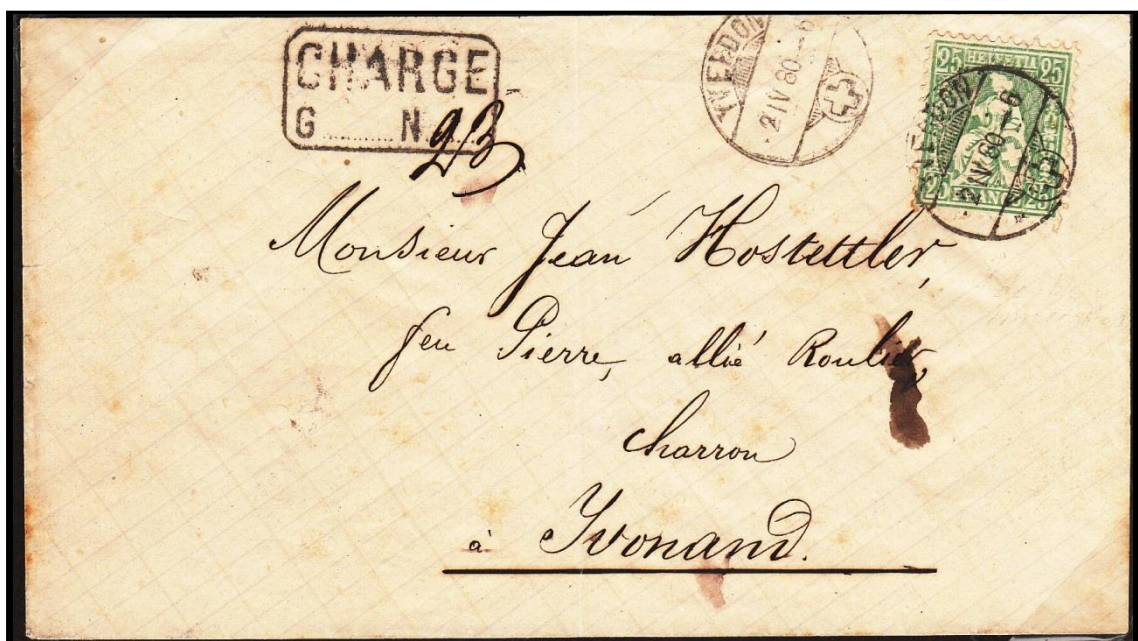 CHARGE
G N.
213
YVERDON
2 IV 80 - 6
25 HELVETIA 25
25 FRANCO 25
YVERDON
2 IV 80 - 6
Monsieur Jean Hostettler,
feu Pierre, allié Roulier,
charron
à Yvonand.